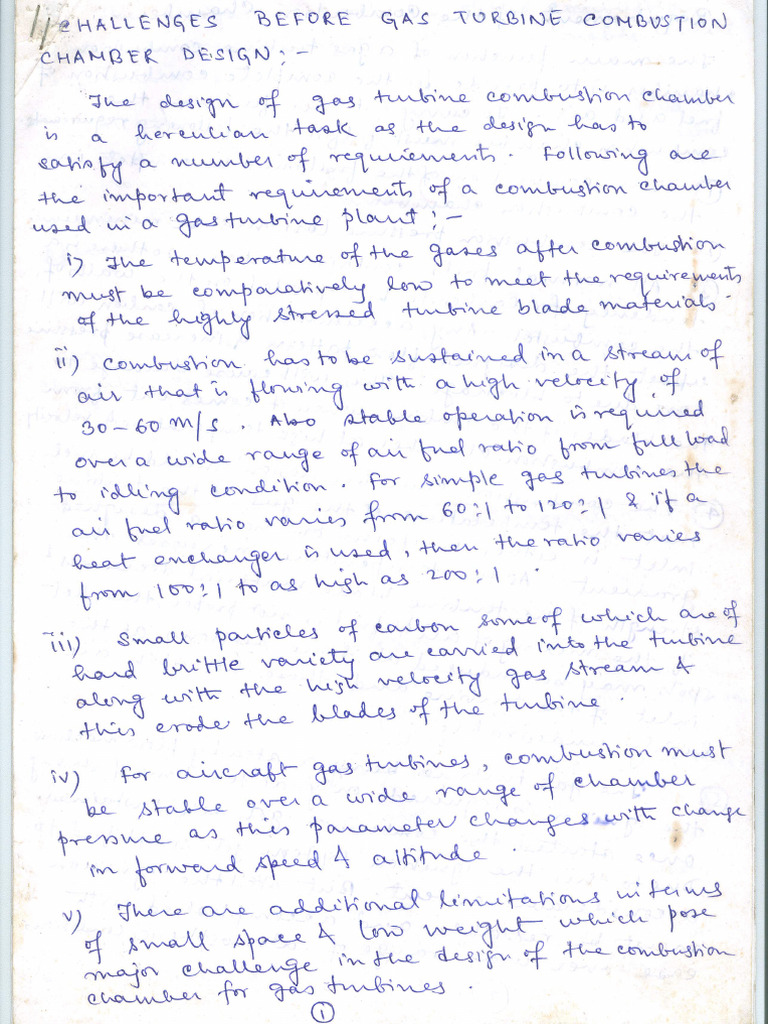 1) CHALLENGES BEFORE GAS TURBINE COMBUSTION
CHAMBER DESIGN :-
The design of gas turbine combustion chamber
is a herculian task as the design has to
satisfy a number of requirements. Following are
the important requirements of a combustion chamber
used in a gas turbine plant :-
i) The temperature of the gases after combustion
must be comparatively low to meet the requirements
of the highly stressed turbine blade materials.
ii) Combustion has to be sustained in a stream of
air that is flowing with a high velocity of
30-60 m/s. Also stable operation is required
over a wide range of air fuel ratio from full load
to idling condition. For simple gas turbines the
air fuel ratio varies from 60:1 to 120:1 & if a
heat enchanger is used, then the ratio varies
from 100:1 to as high as 200:1.
iii) Small particles of carbon some of which are of
hard brittle variety are carried into the turbine
along with the high velocity gas stream &
this erode the blades of the turbine.
iv) For aircraft gas turbines, combustion must
be stable over a wide range of chamber
pressure as this parameter changes with change
in forward speed & altitude.
v) There are additional limitations in terms
of small space & low weight which pose
major challenge in the design of the combustion
chamber for gas turbines.
1